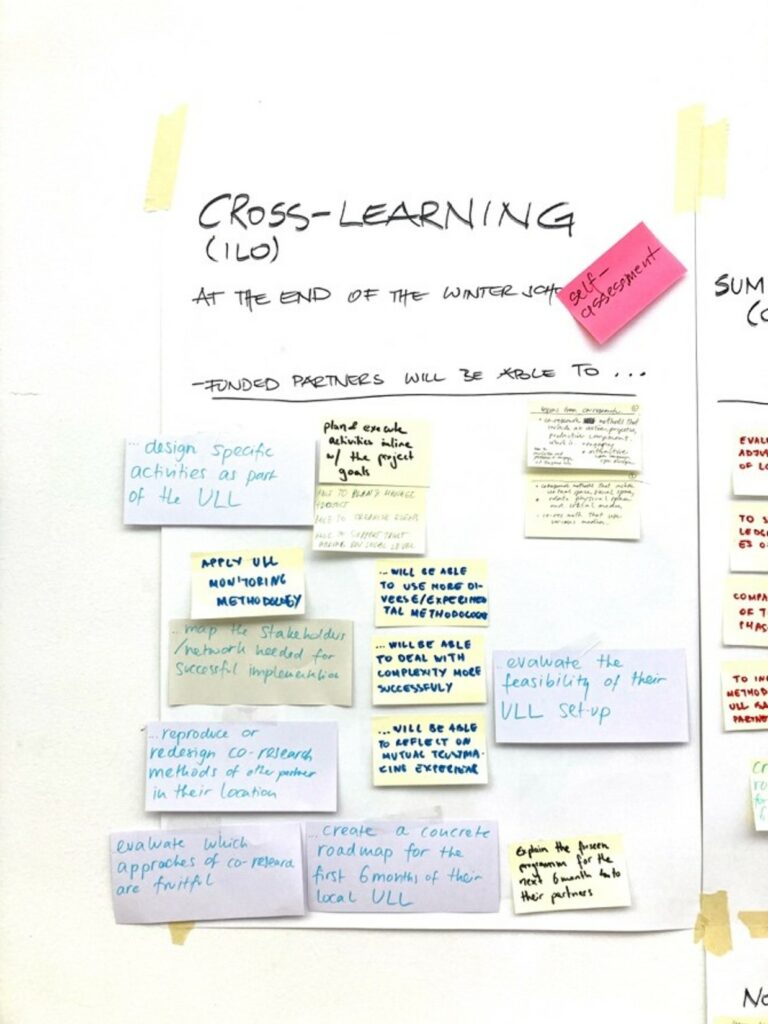 CROSS-LEARNING
(ILO)
AT THE END OF THE WINTER SCHO
self-
assessment
-FUNDED PARTNERS WILL BE ABLE TO ...
... design specific
activities as part
of the ULL
plan & execute
activities inline
w/ the project
goals
ABLE TO
PROJECT
ABLE TO ORGANISE
ABLE TO SUPPORT TRUST
LOCAL LEVEL
co-research methods that
include
component.
co-research methods that include
virtual space, social space,
physical space,
and social media,
co-res meth that use
various medias.
APPLY ULL
MONITORING
METHODOLOGY
... WILL BE ABLE
TO USE MORE DI-
VERSE/EXPERIMEN
TAL METHODOLOGY
... map the stakeholders
/network needed for
successful implementation
... WILL BE ABLE
TO DEAL WITH
COMPLEXITY MORE
SUCCESSFULY
... evaluate the
feasibility of their
ULL set-up
... reproduce or
redesign co-research
methods of other partner
in their location
... WILL BE ABLE
TO REFLECT ON
MUTUAL TRUSTMA-
KING EXPERIENCE
evaluate which
approches of co-research
are fruitful
... create a concrete
roadmap for the
first 6 months of their
local ULL
Explain the
programm for the
next 6 month to
their partners
SUM
(
EVALU
ADJU
OF LO
TO S
LEDG
ES O
COMPA
OF T
PHAS
TO IN
METHOD
ULL BA
PARTNE
cr
ro
fo
6
No